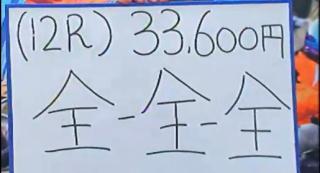 (12R) 33,600円
全-全-全